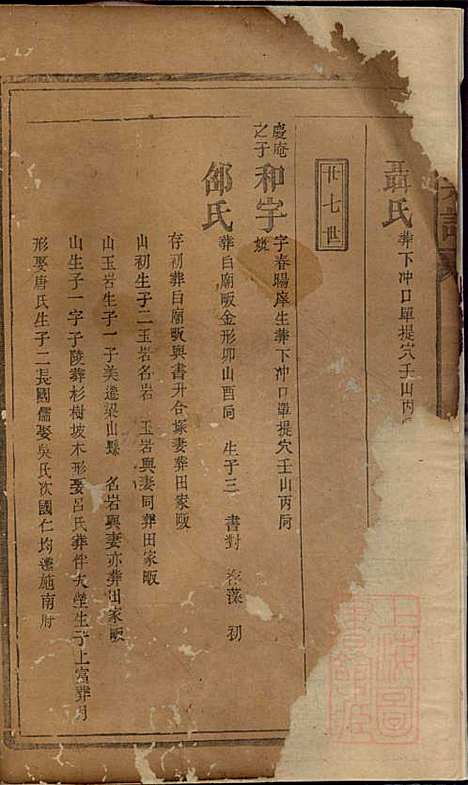 聶氏 葬下冲口單提穴壬山丙
廿七世
慶庵之子 和字 字春暘庠生葬下冲口單提穴壬山丙向
邵氏 葬白廟畈金形卯山酉向 生子三 書對 存藻 初
存初葬白廟畈與書升合塚妻葬田家畈
山初生子二玉岩名岩 玉岩與妻同葬田家畈
山玉岩生子一子美遷梁山縣 名岩與妻亦葬田家畈
山生子一字子陵葬杉樹坡木形娶呂氏葬件犬塋生子上富葬月
形娶唐氏生子二長國儒娶吳氏次國仁均遷施南府